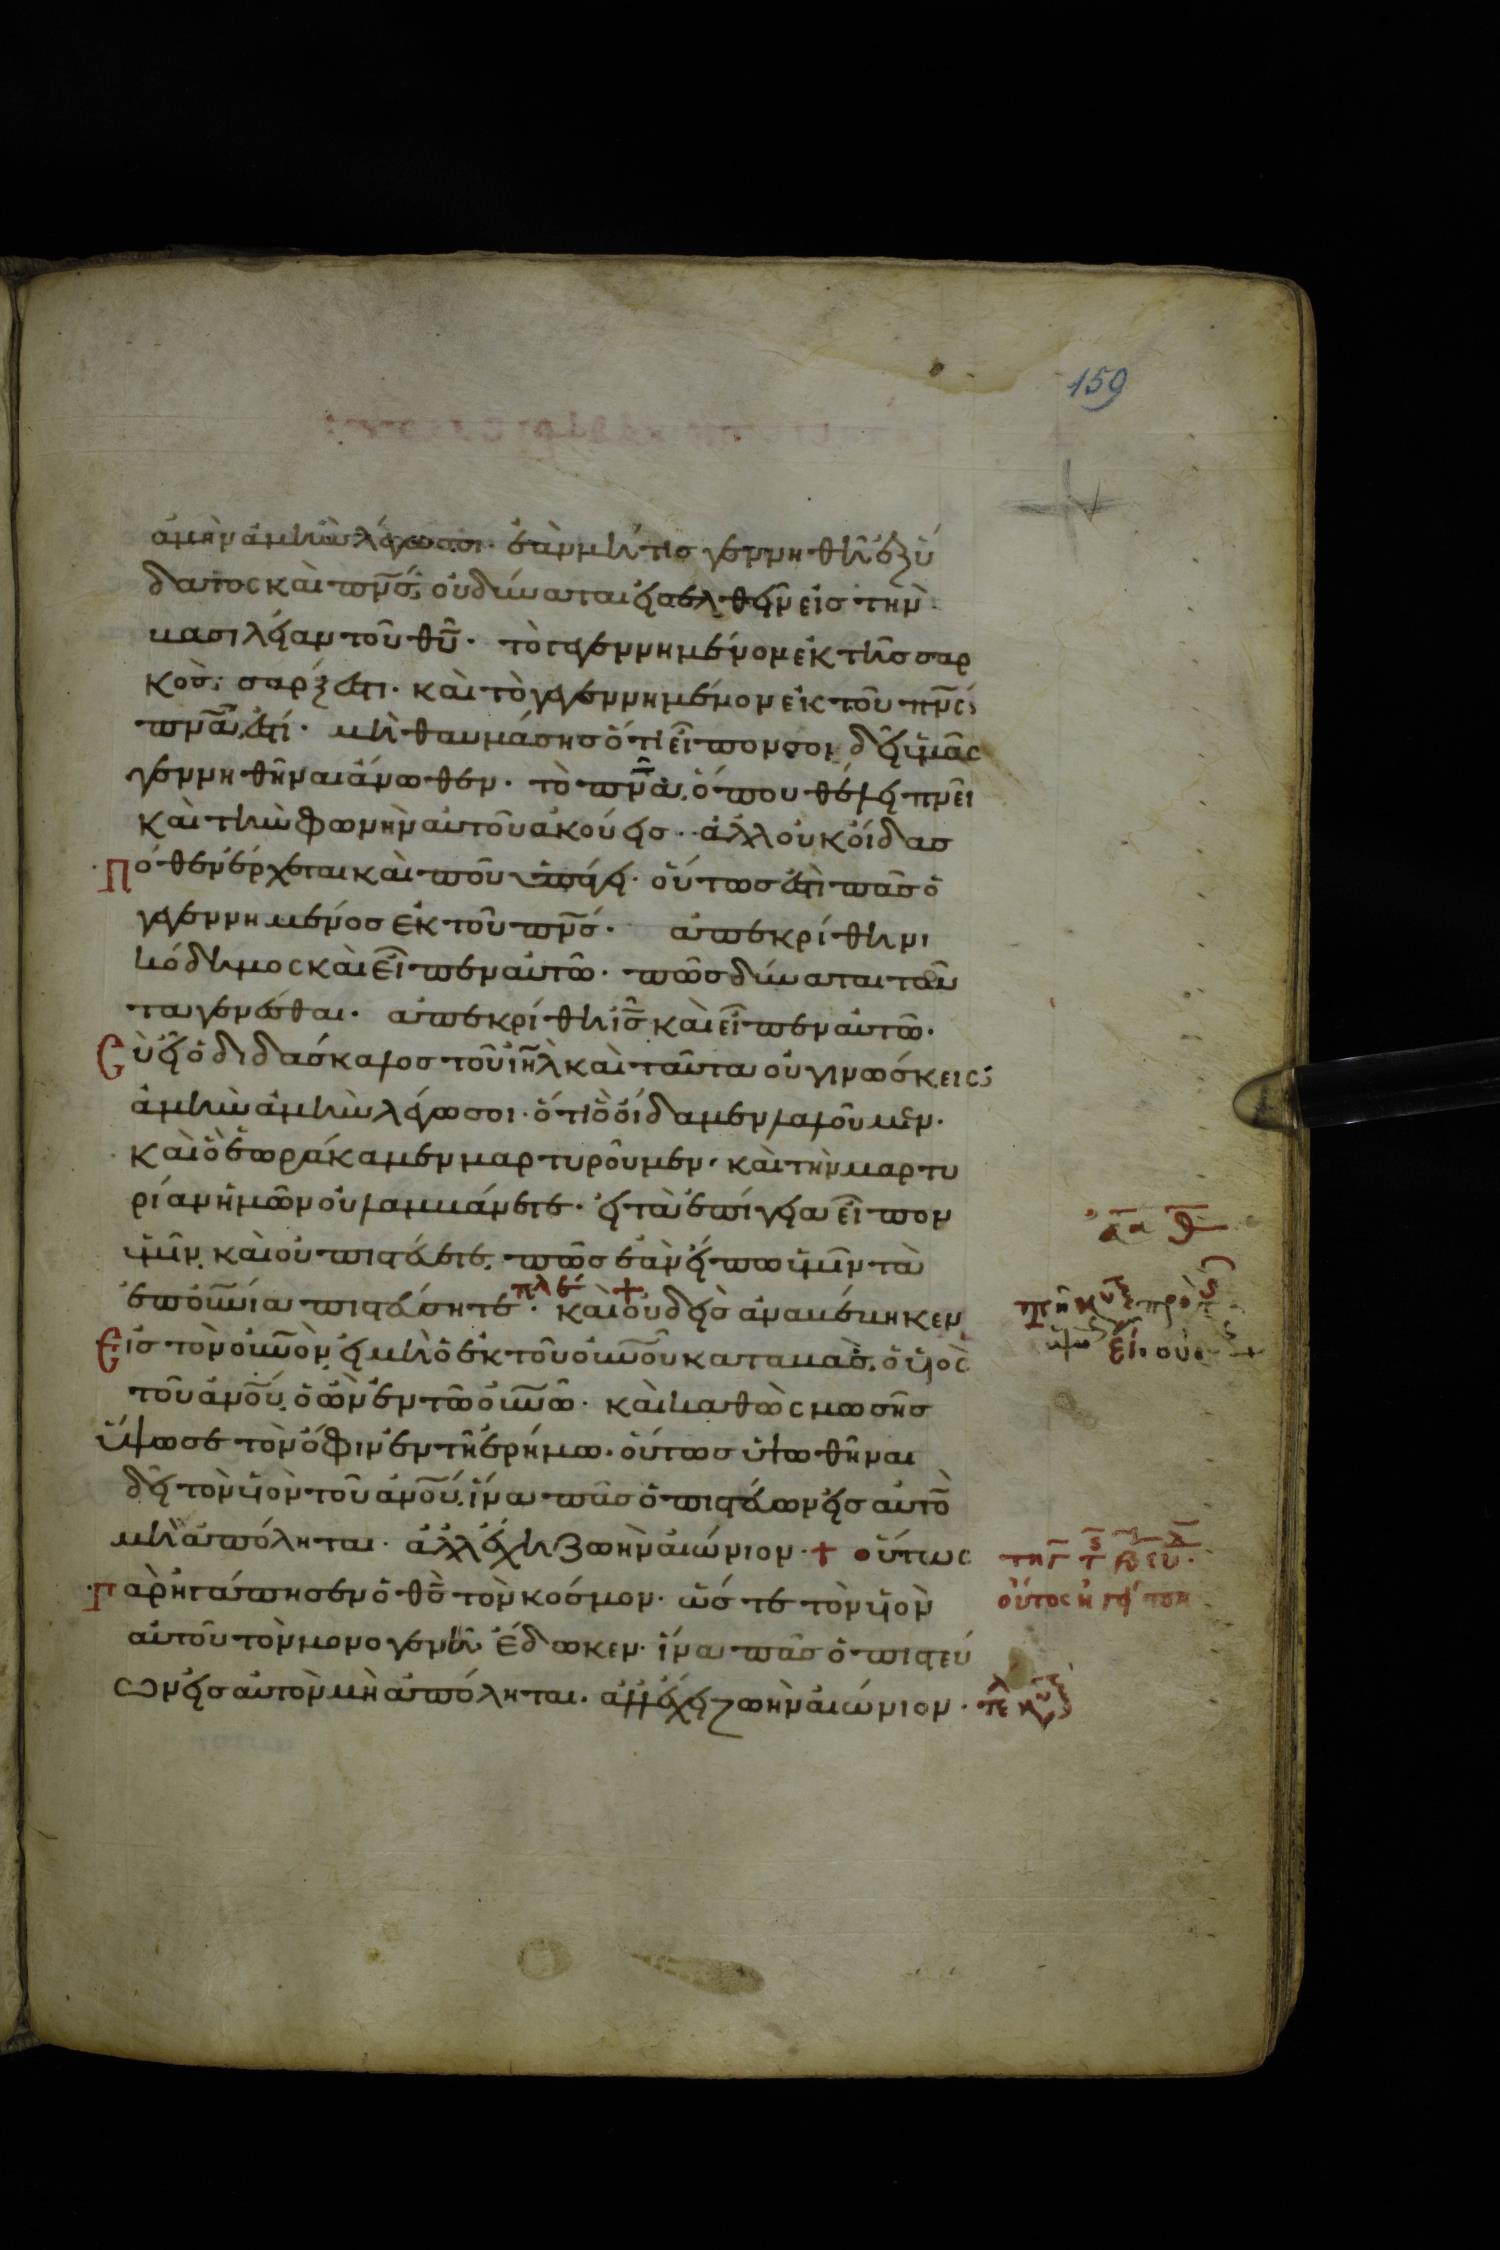 159
ἀμὴν ἀμὴν λέγω σοι. ἐὰν μή τις γεννηθῆ ἐξ ὕ
δατος καὶ πν̅ς, οὐ δύναται εἰσελθεῖν εἰς τὴν
βασιλείαν τοῦ θυ̅. τὸ γεγεννημένον ἐκ τῆς σαρ
κὸς, σάρξ ἐστι. καὶ τὸ γεγεννημένον ἐκ τοῦ πν̅ς,
πν̅α ἐστί. μὴ θαυμάσης ὅτι εἶπον σοι δεῖ ὑμᾶς
γεννηθῆναι ἄνωθεν. τὸ πν̅α, ὅπου θέλει πνεῖ
καὶ τὴν φωνὴν αὐτοῦ ἀκούεις. ἀλλ οὐκ οἶδας
πόθεν ἔρχεται καὶ ποῦ ὑπάγει. οὕτως ἐστὶ πᾶς ὁ
γεγεννημένος ἐκ τοῦ πν̅ς. ἀπεκρίθη νι
κόδημος καὶ εἶπεν αὐτῶ. πῶς δύναται ταῦ
τα γενέσθαι. ἀπεκρίθη ις̅ καὶ εἶπεν αὐτῶ.
Cὺ εἶ ὁ διδάσκαλος τοῦ ιη̅λ καὶ ταῦτα οὐ γινώσκεις;
ἀμὴν ἀμὴν λέγω σοι. ὅτι ὃ οἴδαμεν λαλοῦμεν.
καὶ ὃ ἑωράκαμεν μαρτυροῦμεν. καὶ τὴν μαρτυ
ρίαν ἡμῶν οὐ λαμβάνετε. εἰ τὰ ἐπίγεια εἶπον
ὑμῖν, καὶ οὐ πιστεύετε, πῶς ἐὰν εἴπω ὑμῖν τὰ
ἐπουν̅ια πιστεύσητε. καὶ οὐδεὶς ἀναβέβηκεν
εἰς τὸν ουν̅ὸν, εἰ μὴ ὁ ἐκ τοῦ ουν̅οῦ καταβὰς, ὁ υἱὸς
τοῦ αν̅ου, ὁ ὢν ἐν τῶ ουν̅ῶ. καὶ καθὼς μωσῆς
ὕψωσε τὸν ὄφιν ἐν τῆ ἐρήμω. οὕτως ὑψωθῆναι
δεῖ τὸν υἱὸν τοῦ αν̅ου, ἵνα πᾶς ὁ πιστεύων εἰς αὐτὸ
μὴ ἀπόληται. ἀλλ ἔχη ζωὴν αἰώνιον. + οὕτως
γὰρ ἠγάπησεν ὁ θς̅ τὸν κόσμον. ὥστε τὸν υἱὸν
αὐτοῦ τὸν μονογενῆ ἔδωκεν. ἵνα πᾶς ὁ πιστεύ
ων εἰς αὐτὸν μὴ ἀπόληται. ἀλλ ἔχει ζωὴν αἰώνιον.